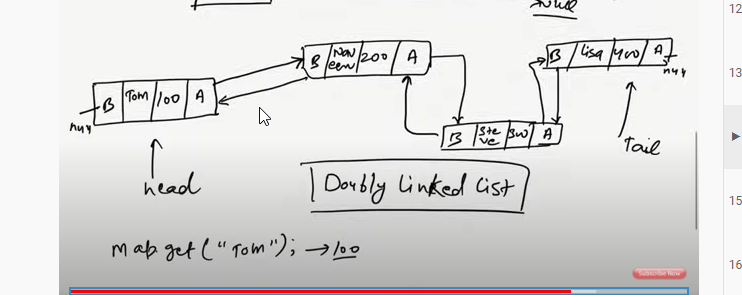 B Tom 100 A
null
head
B Nav een 200 A
B Ste ve 300 A
B Lisa 400 A
null
Tail
Doubly Linked List
Map.get("Tom"); → 100
Subscribe Now
12
13
15
16